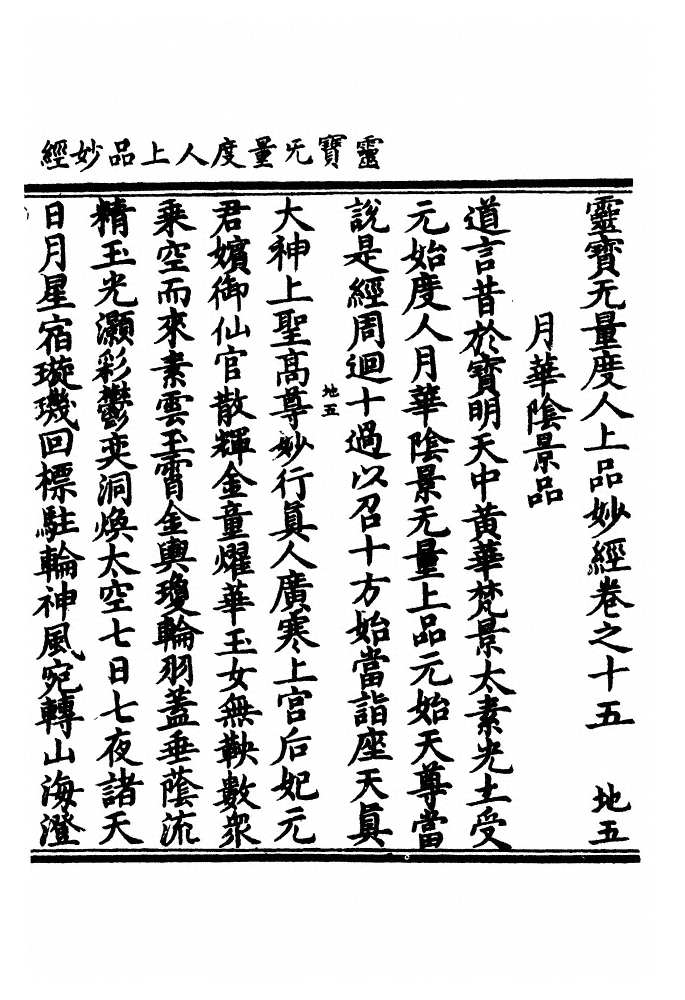 靈寶无量度人上品妙經
靈寶无量度人上品妙經卷之十五 地五
月華陰景品
道言昔於寶明天中黃華梵景太素光土受
元始度人月華陰景无量上品元始天尊當
說是經周迴十過以召十方始當詣座天真
地五
大神上聖高尊妙行真人廣寒上宮后妃元
君嬪御仙官散輝金童燿華玉女無鞅數眾
乘空而來素雲玉霄金輿瓊輪羽蓋垂蔭流
精玉光灝彩鬱奕洞煥太空七日七夜諸天
日月星宿璇璣回標駐輪神風宛轉山海澄